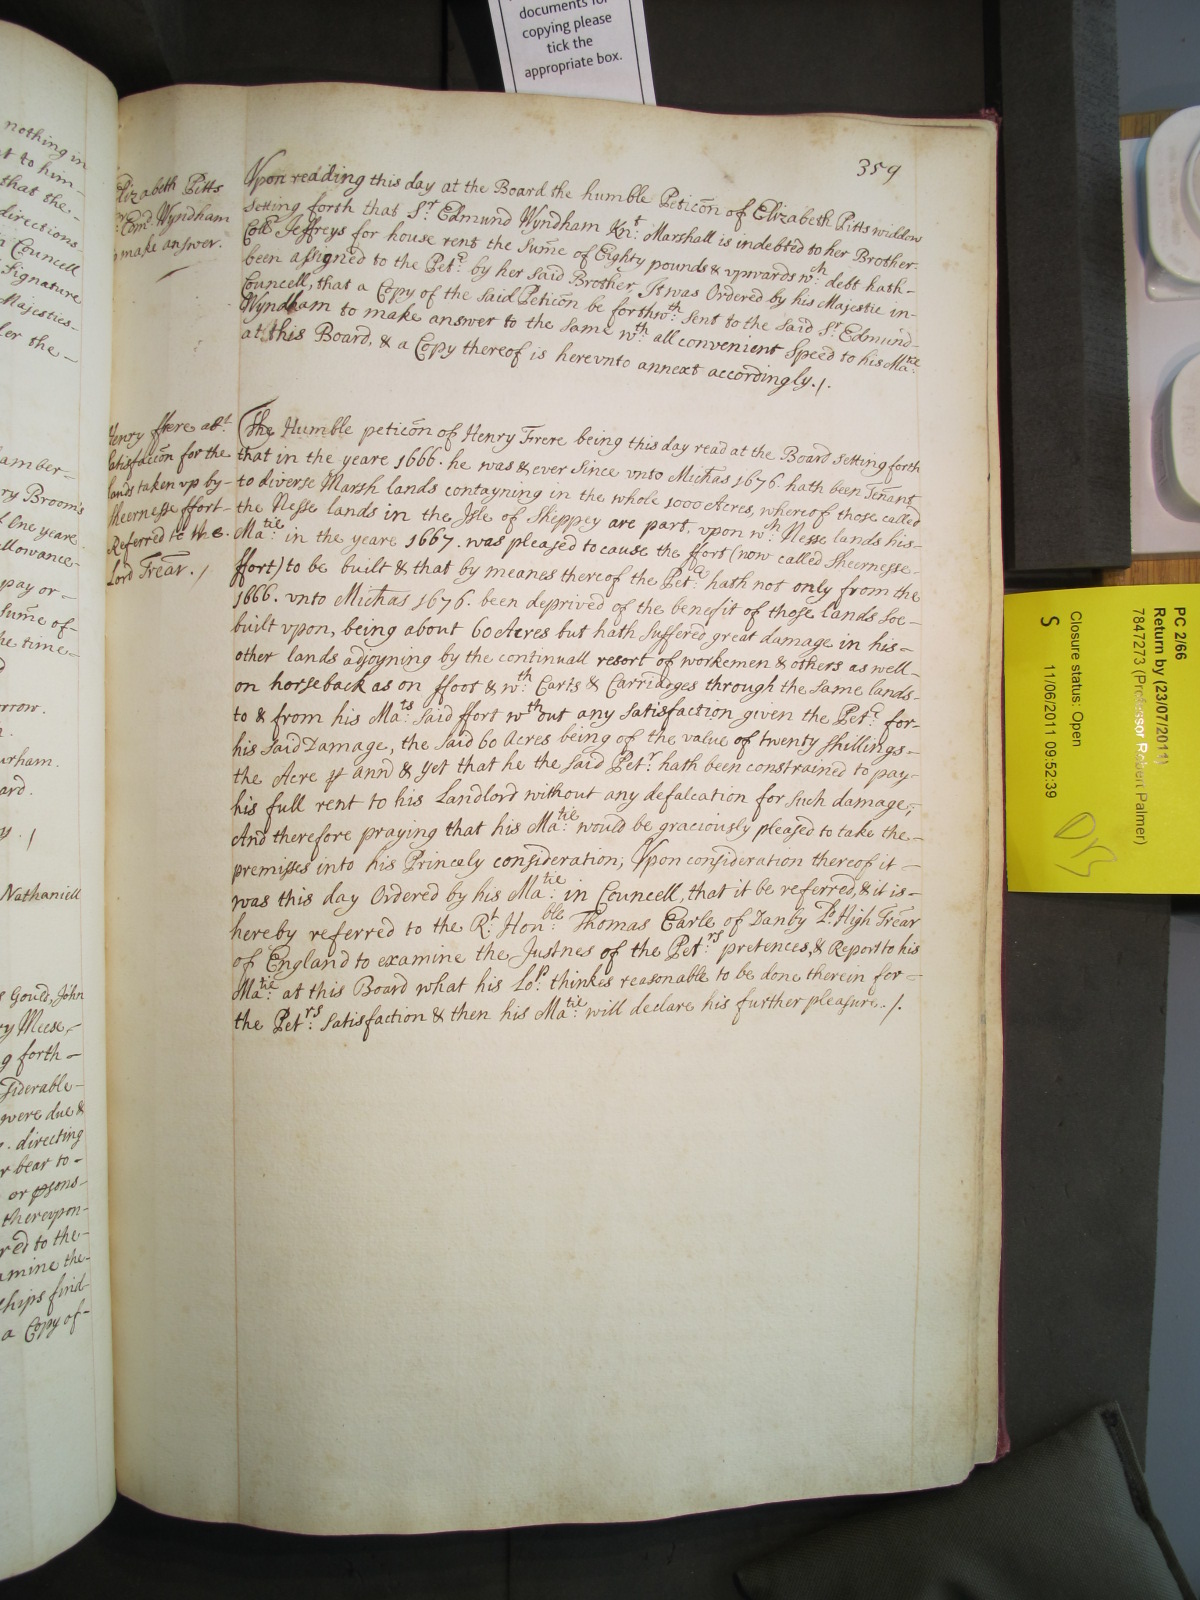 documents for
copying please
tick the
appropriate box.
nothing in
t to him
that the
directions
a Councell
Signature
Majesties
ler the
amber
ry Broom's
One yeare
llowance
pay or
Sum̄e of
he time
rrow.
urham.
ard.
Nathaniell
s Gould, John
ry Meese,
g forth
siderable
were due &
directing
r bear to
or psons
thereupon
red to the
amine the
ships find
a Copy of
359
Elizabeth Pitts
Edm:d Wyndham
make answer.
Vpon reading this day at the Board the humble Peticōn of Elizabeth Pitts widdow
setting forth that Sr. Edmund Wyndham Knt. Marshall is indebted to her Brother
Coll Jeffreys for house rent the Sum̄e of Eighty pounds & vpwards wch debt hath
been assigned to the Petr. by her said Brother, It was Ordered by his Majestie in
Councell, that a Copy of the said Peticōn be forthwth. sent to the said Sr. Edmund
Wyndham to make answer to the same wth. all convenient speed to his Matie.
at this Board, & a Copy thereof is herevnto annext accordingly./.
Henry ffrere abt.
satisfaccōn for the
lands taken vp by
Sheernesse ffort
Referred to the
Lord Trear./
The Humble peticōn of Henry Frere being this day read at the Board setting forth
that in the yeare 1666. he was & ever since vnto Michas 1676. hath been Tenant
to diverse Marsh lands contayning in the whole 1000 Acres, whereof those called
the Nesse lands in the Isle of Sheppey are part, vpon wch. Nesse lands his
Matie in the yeare 1667. was pleased to cause the ffort (now called Sheernesse
ffort) to be built & that by meanes thereof the Petr. hath not only from the
1666. vnto Michas 1676. been deprived of the benefit of those lands soe
built vpon, being about 60 Acres but hath suffered great damage in his
other lands adjoyning by the continuall resort of workemen & others as well
on horseback as on ffoot & wth. Carts & Carriadges through the same lands
to & from his Mats. said ffort wthout any satisfaction given the Petr. for
his said Damage, the said 60 Acres being of the value of twenty shillings
the Acre p ann̄ & yet that he the said Petr. hath been constrained to pay
his full rent to his Landlord without any defalcation for such damage;
And therefore praying that his Matie. would be graciously pleased to take the
premisses into his Princely consideration; Vpon consideration thereof it
was this day Ordered by his Matie. in Councell, that it be referred, & it is
hereby referred to the Rt. Honble. Thomas Earle of Danby Ld. High Trear
of England to examine the Justnes of the Petrs. pretences, & Report to his
Matie. at this Board what his Lop. thinkes reasonable to be done therein for
the Petrs. satisfaction & then his Matie. will declare his further pleasure./.
PC 2/66
Return by (23/07/2011)
7847273 (Professor Robert Palmer)
Closure status: Open
S 11/06/2011 09:52:39